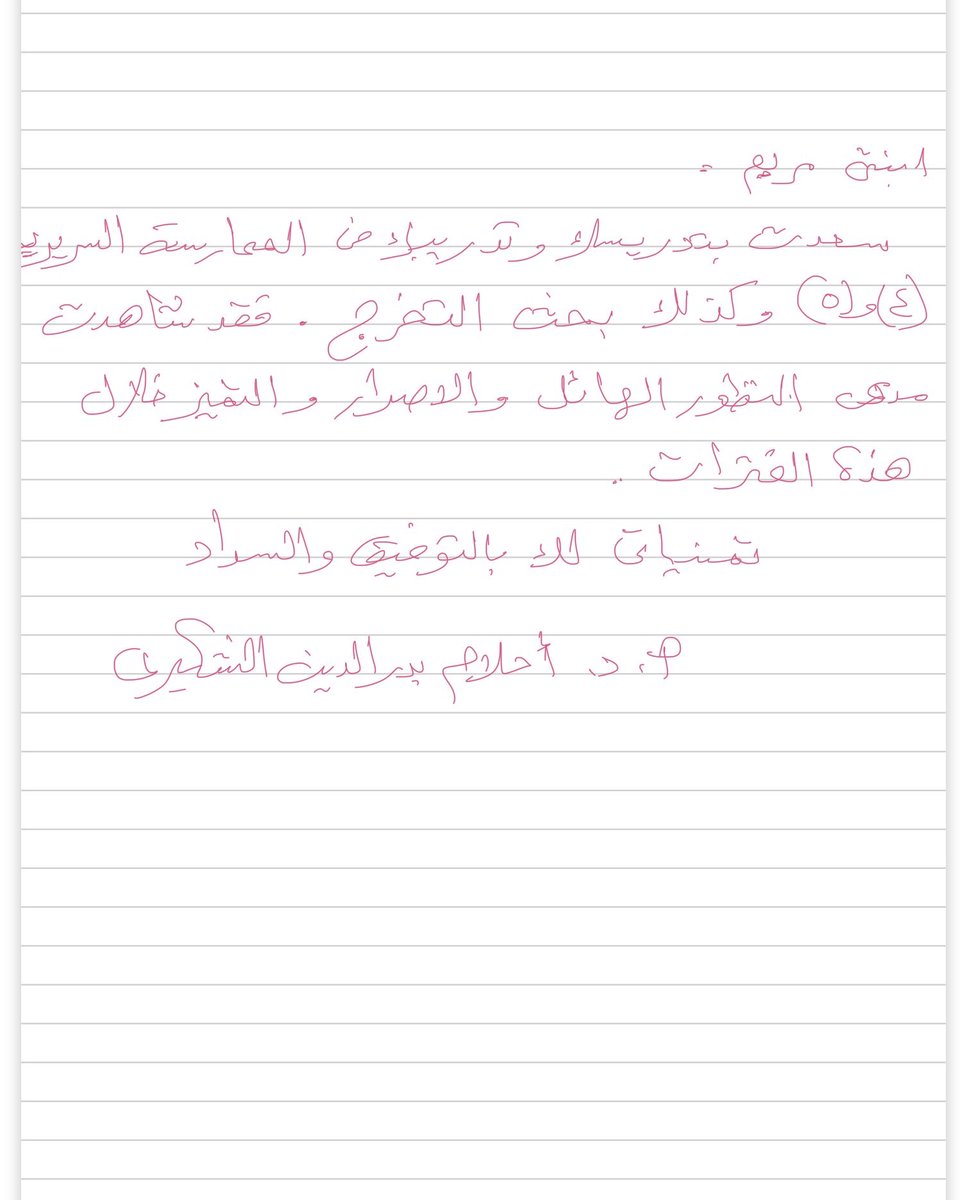 ابنتي مريم -
سعدت بتدريسك وتدريبك في الممارسة السريرية
(٤) و(٥) وكذلك بحث التخرج . فقد شاهدت
مدى التطور الهائل والاصرار والتميز خلال
هذه الفترات ..
تمنياتي لك بالتوفيق والسداد
م. د. أحلام بدر الدين الشكيري